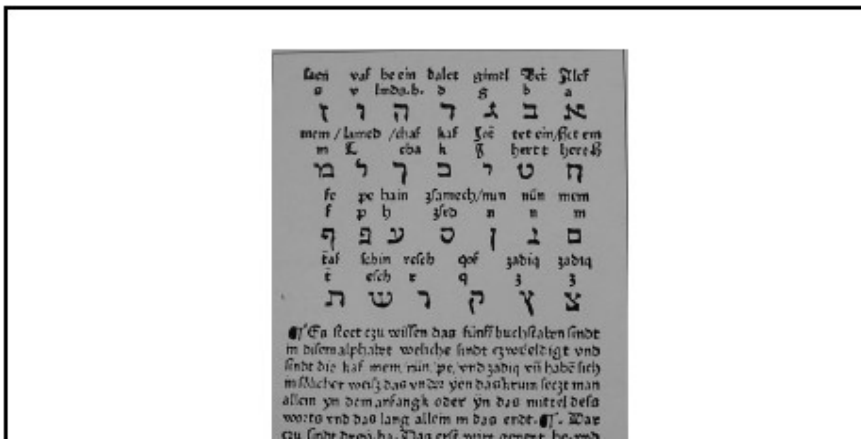 saen vaf he ein dalet gimel Bet Alef
s v d g b a
א ב ג ד ה ו ז
mem / lamed / chaf kaf Jot tet ein / het em
m L cha k J hert t here
ח ט י כ ך ל מ
fe pe hain zsamech / nun nün mem
f p h zsed n n m
ם נ ן ס ע פ ף
taf schin resch qof zadiq zadiq
t esch r q z z
צ ץ ק ר ש ת
Es steet czu wissen das fünff buchstaben sindt
in disem alphabet weliche sindt czwifeldigt vnd
sindt die kaf mem, nün, pe, vnd zadiq vñ habē sich
in sölicher weisz das vnder yen das krum seczt man
allein yn dem anfangk oder ÿn das mittel dess
worts vnd das lang allein in das endt. ¶ War
czu sindt